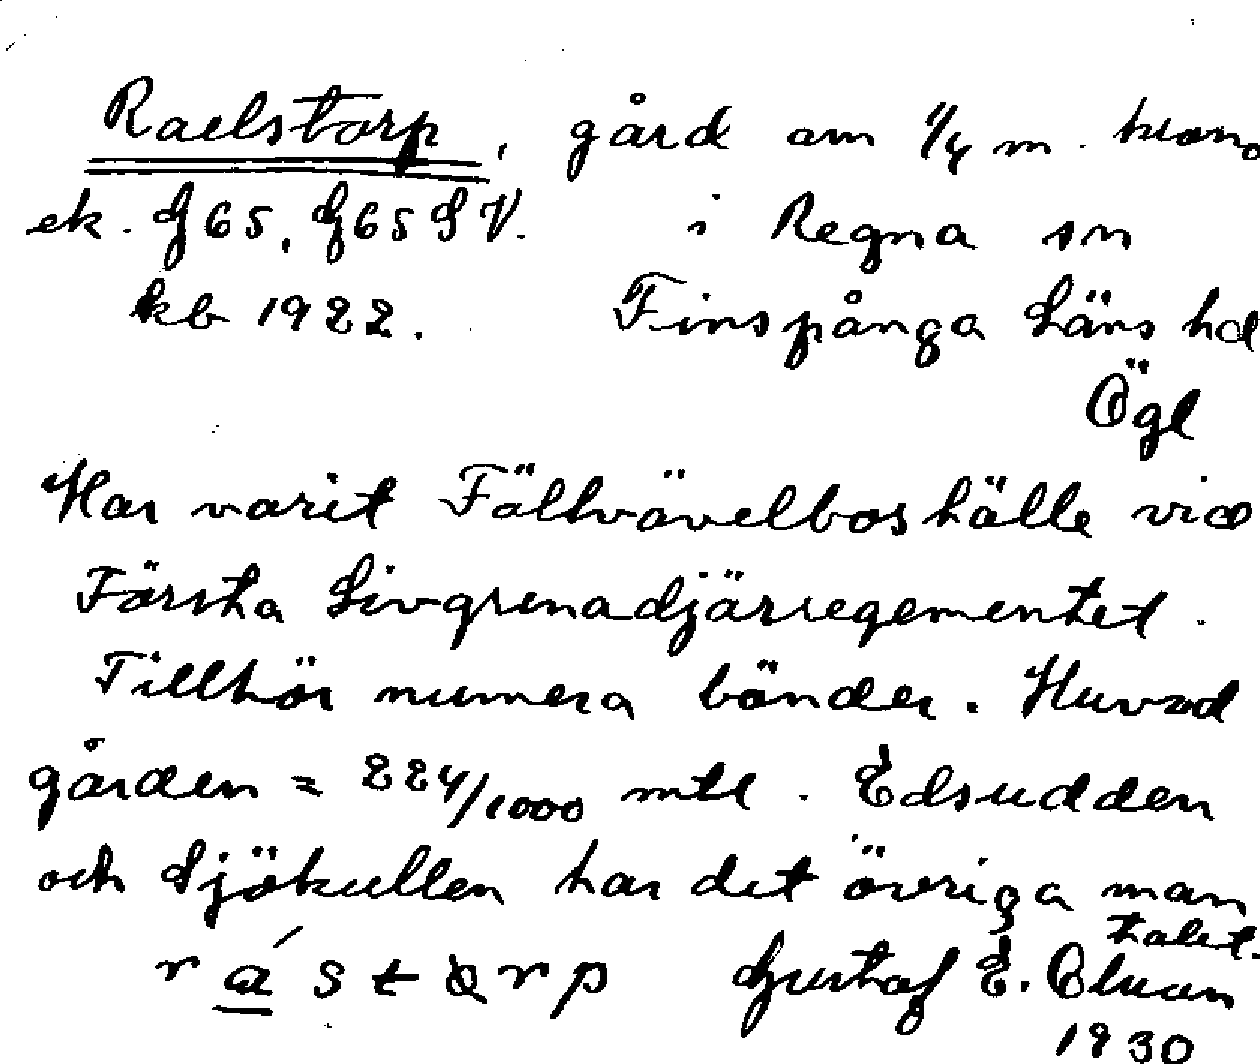 Raelstorp, gård om 1/4 m. krono
ek. G65, G65SV. i Regna sn
kb 1922. Finspånga Läns hd
Ögl
Har varit Fältvävelboställe vid
Första Livgrenadjärregementet.
Tillhör numera bönder. Huvud
gården = 224/1000 mtl. Edsudden
och Sjökullen har det övriga man
talet.
rástorp Gustaf E.
1930